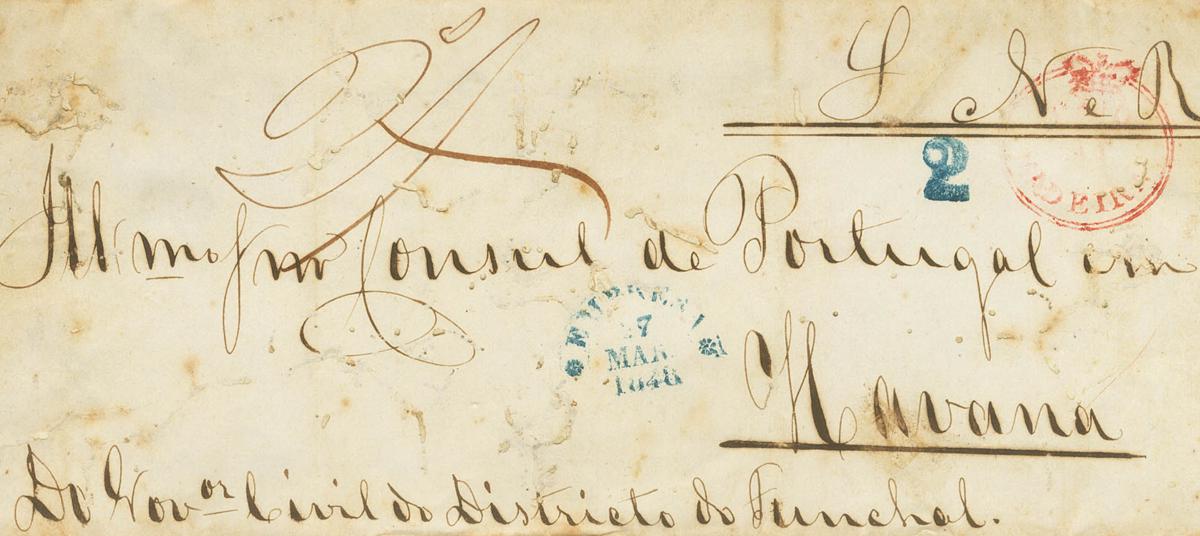 S N e R
2
MADEIRA
Ill.mo Snr Consul de Portugal em
EMPRESA
17
MAR
1848
Havana
Do Gov.or Civil do Districto do Funchal.